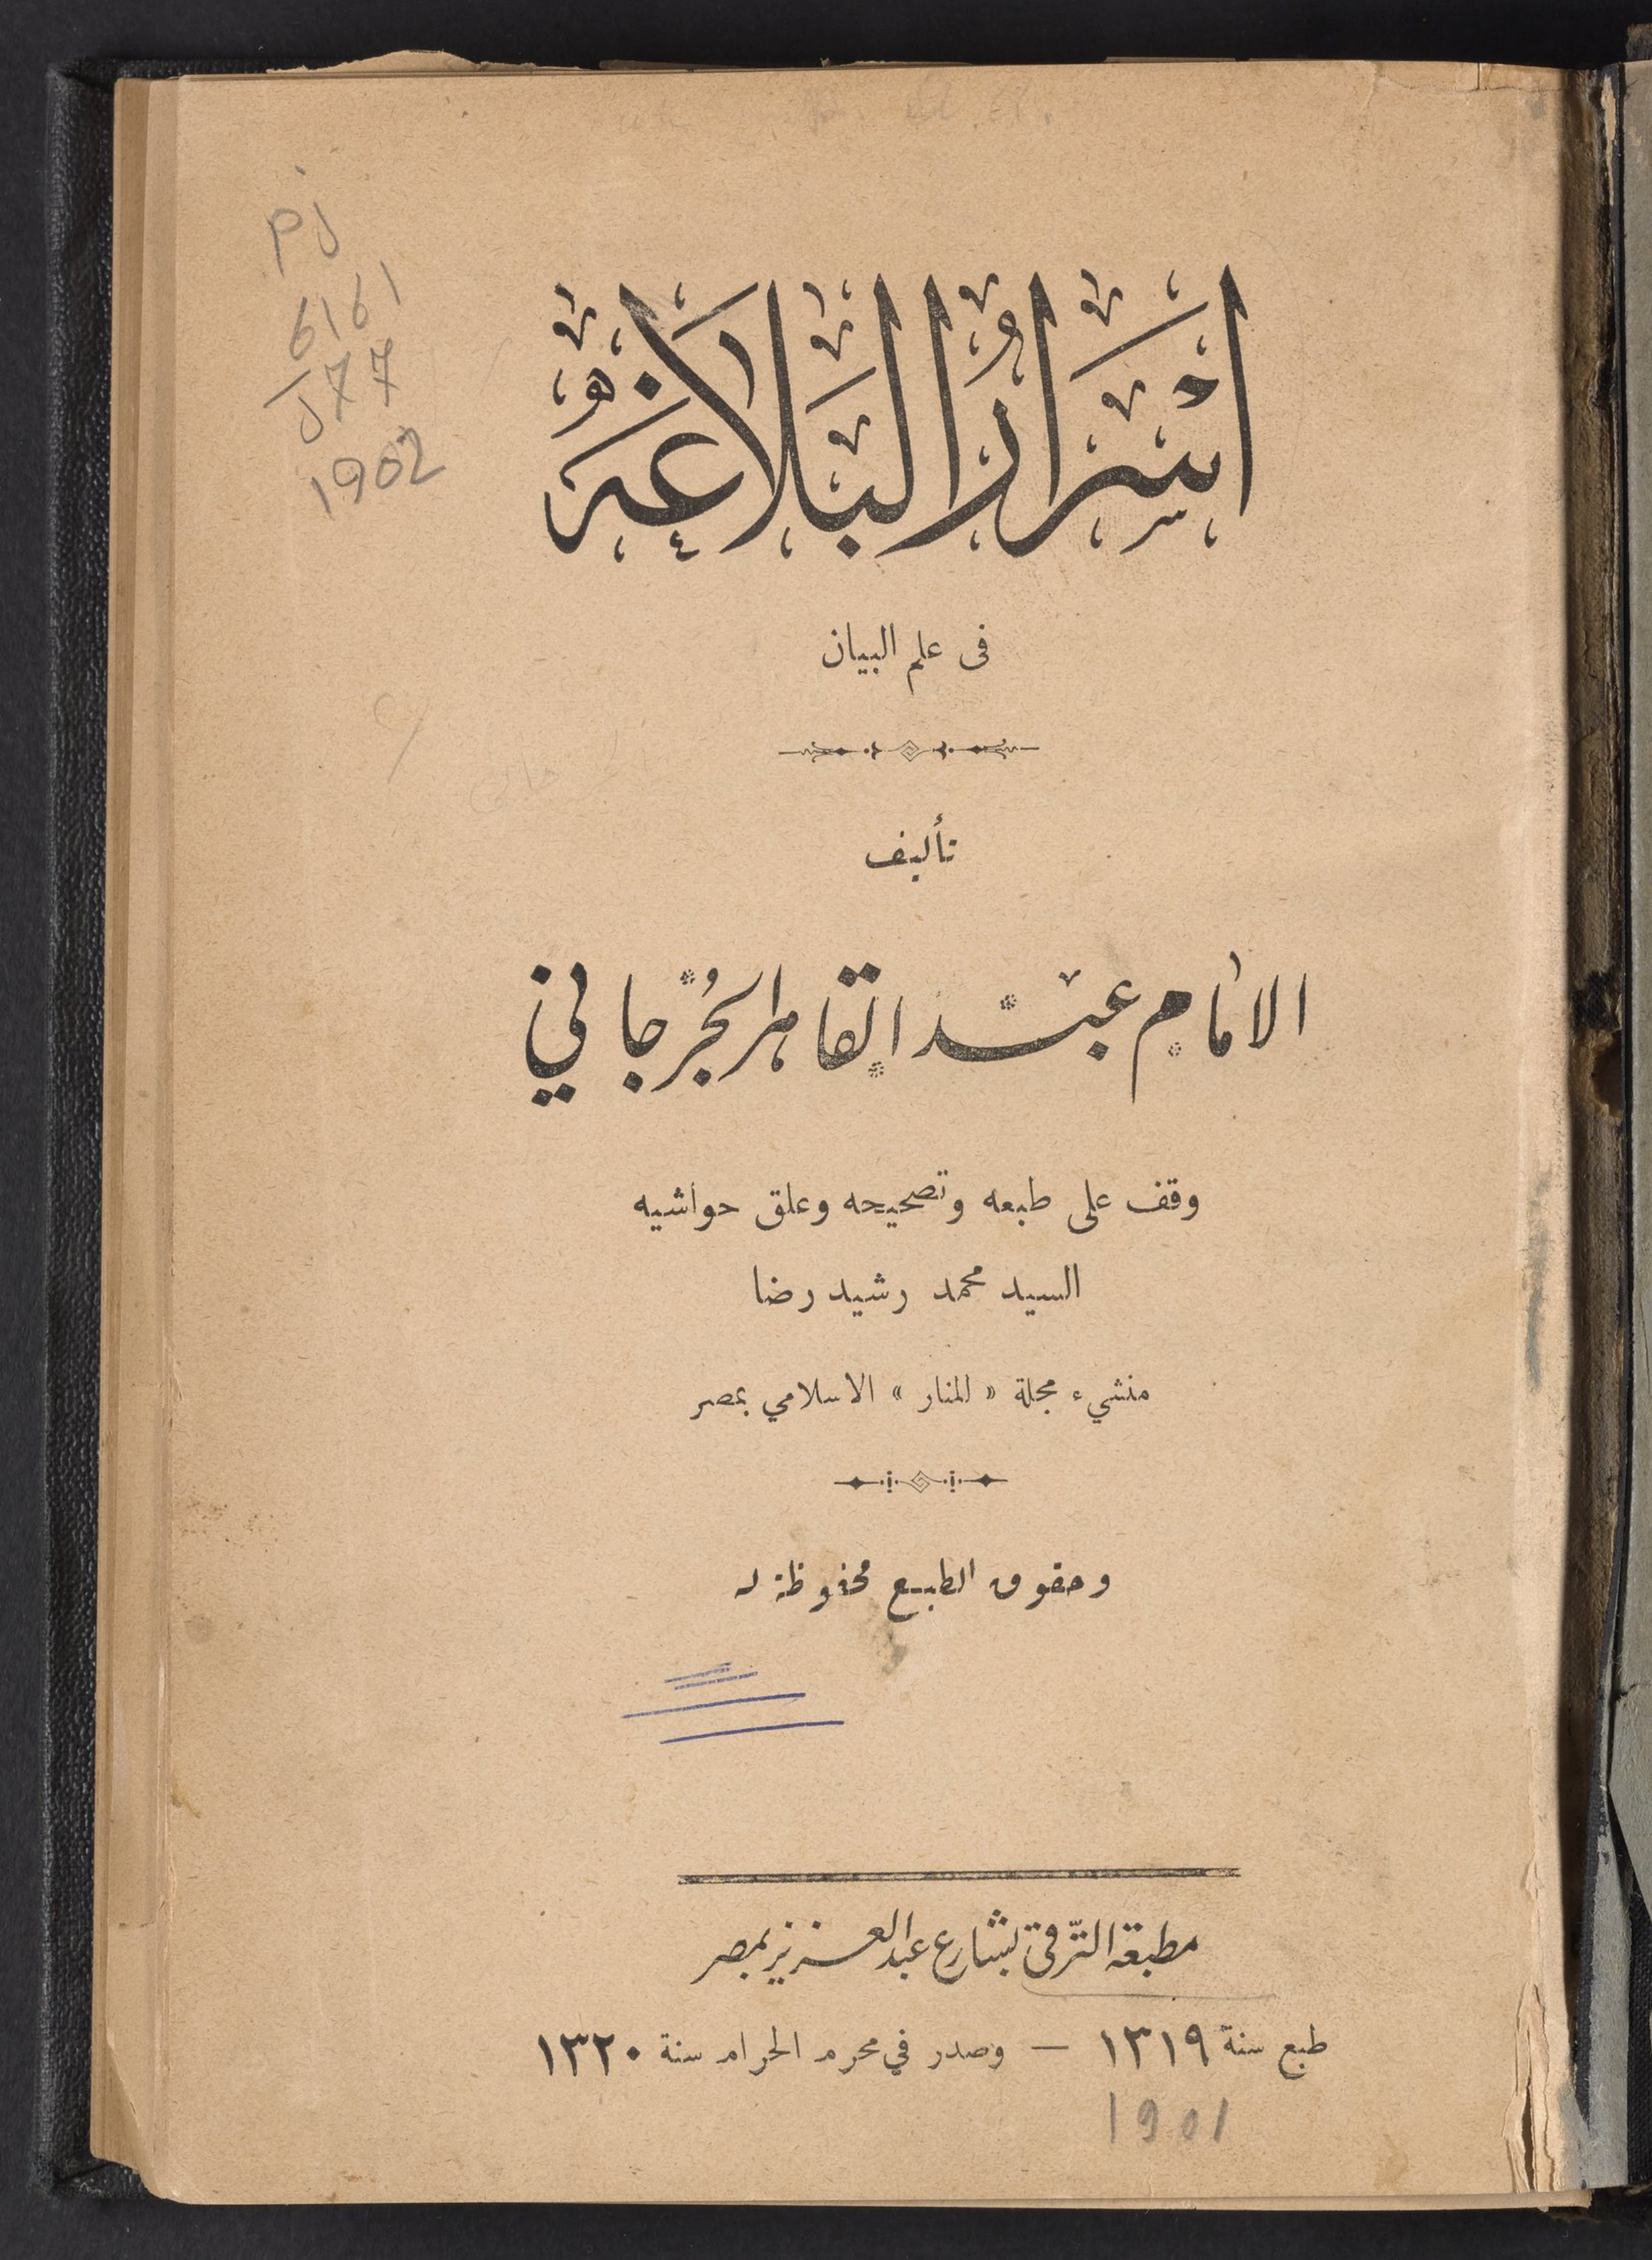 PJ
6161
J77
1902
اسرار البلاغة
فى علم البيان
تأليف
الامام عبد القاهر الجرجاني
وقف على طبعه وتصحيحه وعلق حواشيه
السيد محمد رشيد رضا
منشيء مجلة « المنار » الاسلامي بمصر
وحقوق الطبع محفوظة له
مطبعة الترقى بشارع عبد العزيز بمصر
طبع سنة ١٣١٩ – وصدر في محرم الحرام سنة ١٣٢٠
1901